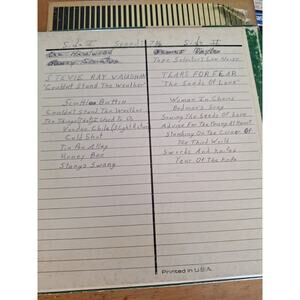 Side I Speed 7½ Side II
Tape Selectors Live Noise
STEVIE RAY VAUGHAN
"Couldn't Stand The Weather"
TEARS FOR FEAR
"The Seeds Of Love"
Scuttle Buttin
Couldn't Stand The Weather
The Things (That) I Used To Do
Voodoo Chile (Slight Return)
Cold Shot
Tin Pan Alley
Honey Bee
Stang's Swang
Woman In Chains
Badman's Song
Sowing The Seeds Of Love
Advice For The Young At Heart
Standing On The Corner Of
The Third World
Swords And Knives
Year Of The Knife
Printed in U.S.A.